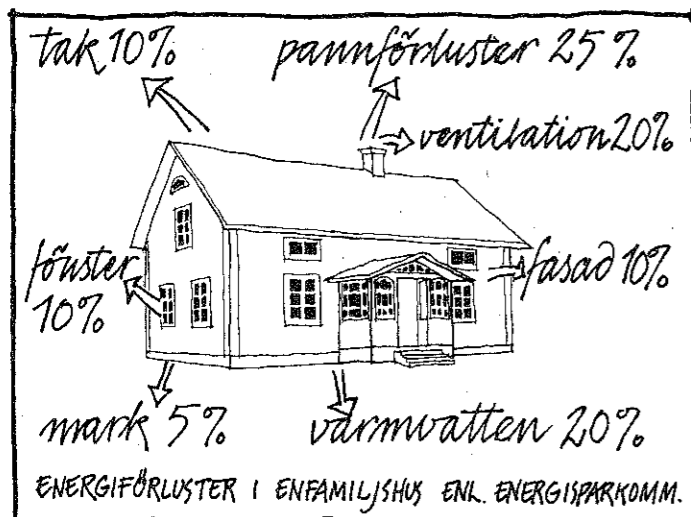 tak 10%
pannförluster 25%
ventilation 20%
fönster
10%
fasad 10%
mark 5%
varmvatten 20%
ENERGIFÖRLUSTER I ENFAMILJSHUS ENL. ENERGISPARKOMM.